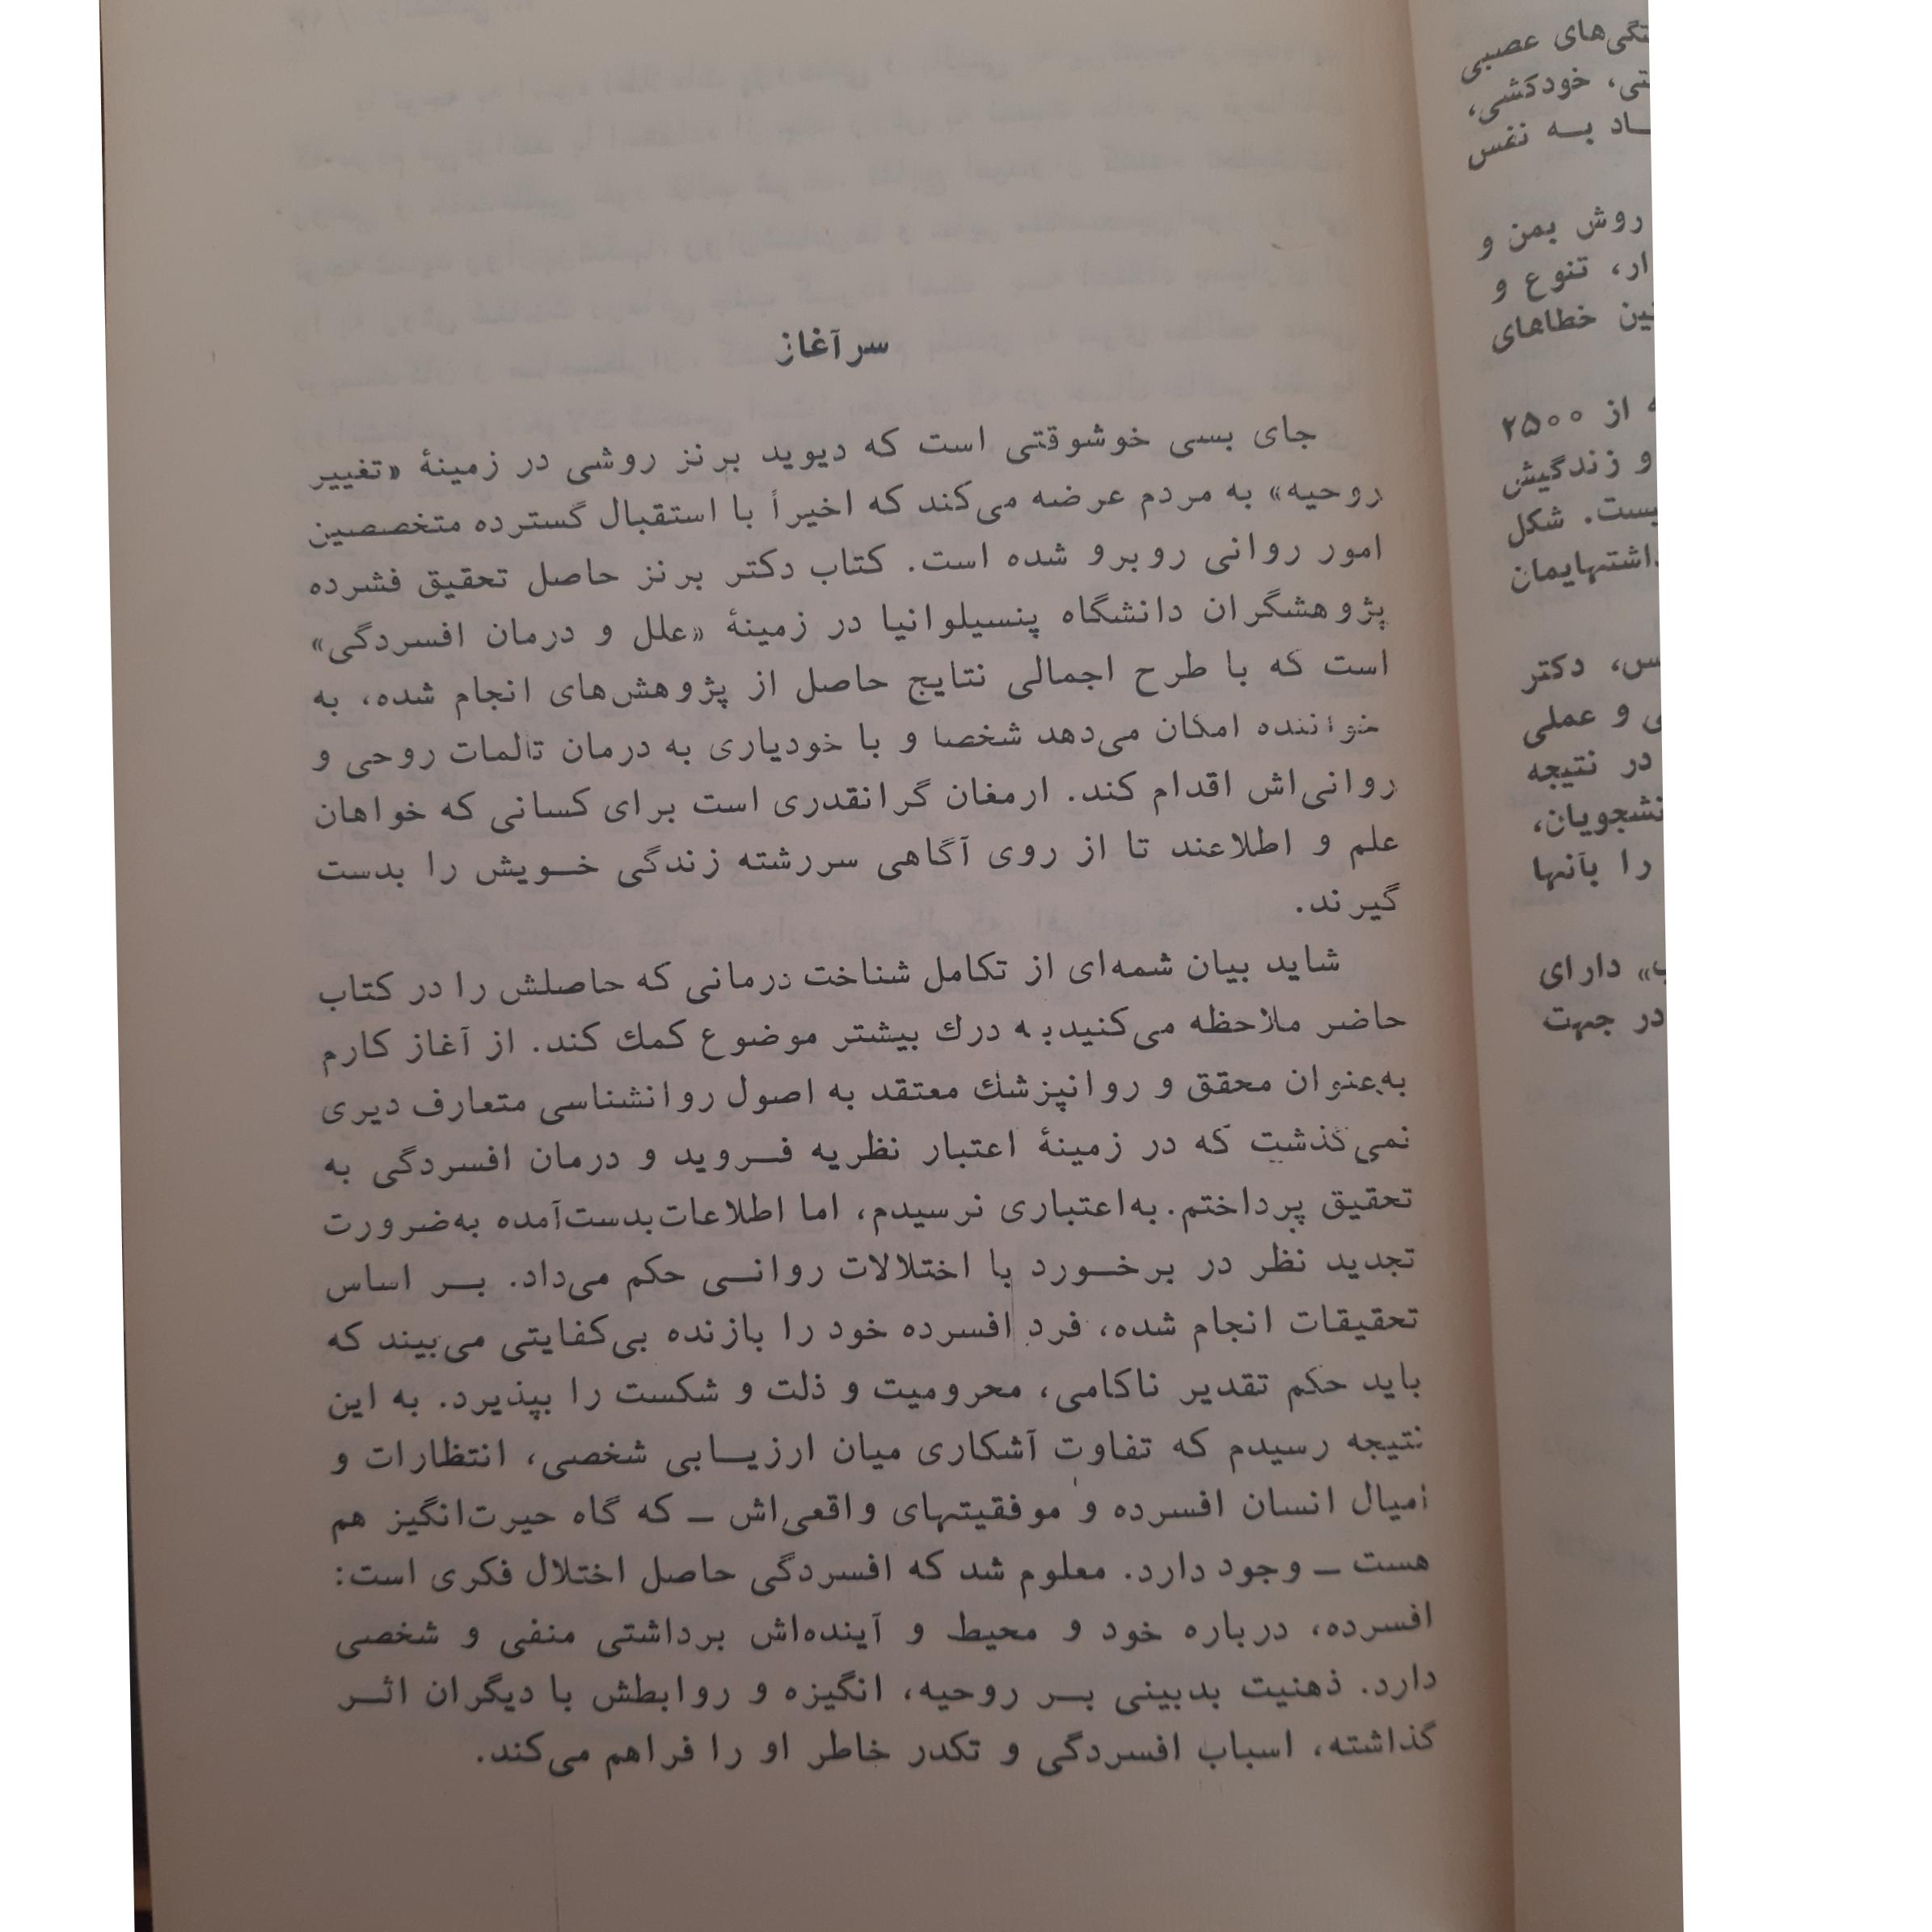 سرآغاز
جای بسی خوشوقتی است که دیوید برنز روشی در زمینهٔ «تغییر
روحیه» به مردم عرضه می‌کند که اخیراً با استقبال گسترده متخصصین
امور روانی روبرو شده است. کتاب دکتر برنز حاصل تحقیق فشرده
پژوهشگران دانشگاه پنسیلوانیا در زمینهٔ «علل و درمان افسردگی»
است که با طرح اجمالی نتایج حاصل از پژوهش‌های انجام شده، به
خواننده امکان می‌دهد شخصا و با خودیاری به درمان تالمات روحی و
روانی‌اش اقدام کند. ارمغان گرانقدری است برای کسانی که خواهان
علم و اطلاعند تا از روی آگاهی سررشته زندگی خـویش را بدست
گیرند.
شاید بیان شمه‌ای از تکامل شناخت درمانی که حاصلش را در کتاب
حاضر ملاحظه می‌کنید به درك بیشتر موضوع کمك کند. از آغاز کارم
به‌عنوان محقق و روانپزشك معتقد به اصول روانشناسی متعارف دیری
نمی‌گذشت که در زمینهٔ اعتبار نظریه فـروید و درمان افسردگی به
تحقیق پرداختم. به‌اعتباری نرسیدم، اما اطلاعات بدست‌آمده به‌ضرورت
تجدید نظر در برخـورد با اختلالات روانـی حکم می‌داد. بـر اساس
تحقیقات انجام شده، فرد افسرده خود را بازنده بی‌کفایتی می‌بیند که
باید حکم تقدیر ناکامی، محرومیت و ذلت و شکست را بپذیرد. به این
نتیجه رسیدم که تفاوت آشکاری میان ارزیـابی شخصی، انتظارات و
امیال انسان افسرده و موفقیتهای واقعی‌اش ـ که گاه حیرت‌انگیز هم
هست ـ وجود دارد. معلوم شد که افسردگی حاصل اختلال فکری است:
افسرده، درباره خود و محیط و آینده‌اش برداشتی منفی و شخصی
دارد. ذهنیت بدبینی بـر روحیه، انگیزه و روابطش با دیگران اثـر
گذاشته، اسباب افسردگی و تکدر خاطر او را فراهم می‌کند.
عصبی
خودکشی،
به نفس
روش بمن و
تنوع و
خطاهای
از ۲۵۰۰
و زندگیش
شکل
دکتر
و عملی
در نتیجه
را بآنها
دارای
در جهت